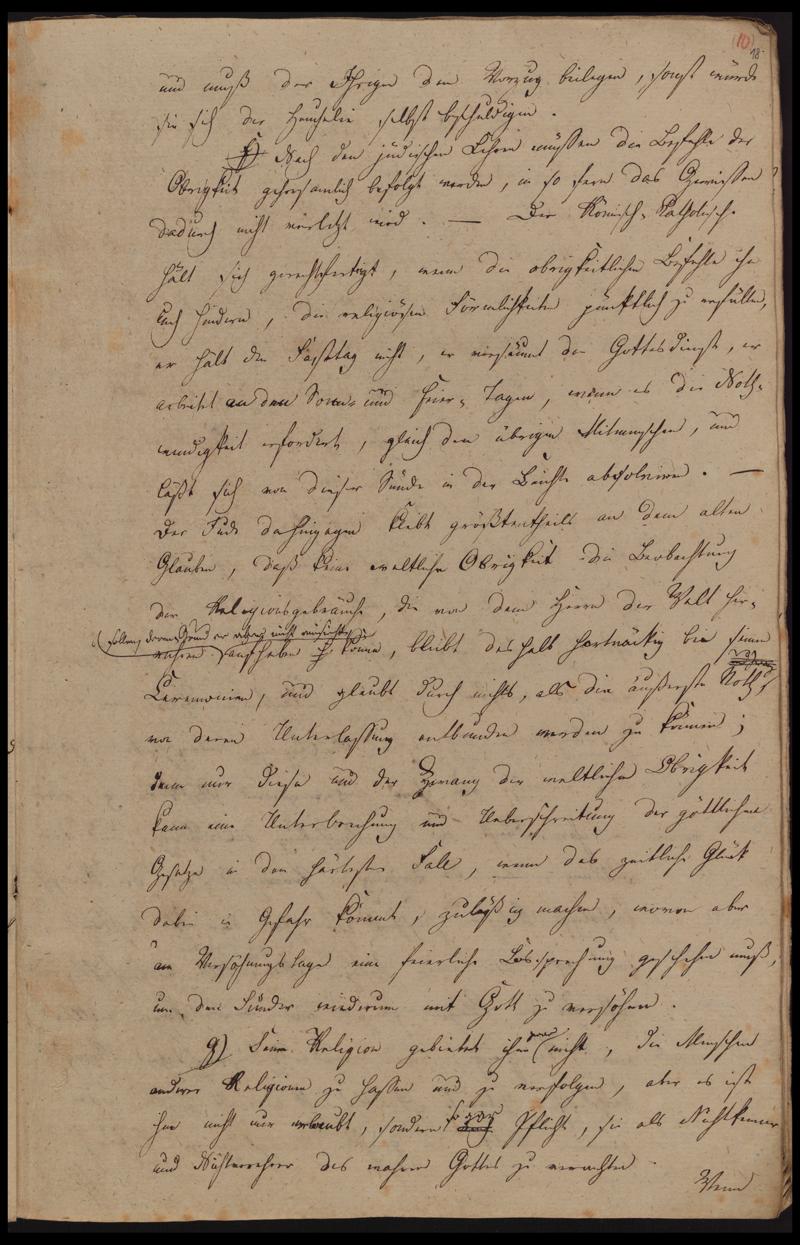 (10)
18.
und muß der Ihrigen den Vorzug beilegen, sonst würde
sie sich der Heuchelei selbst beschuldigen.
f) Nach den jüdischen Lehren müssen die Befehle der
Obrigkeit gehorsamlich befolgt werden, in so fern das Gewissen
dadurch nicht verletzt wird. — Der Römisch-Katholische
hält sich gerechtfertigt, wenn die obrigkeitlichen Befehle ihn
auch hindern, die religiösen Förmlichkeiten pünktlich zu erfüllen,
er hält den Fasttag nicht, er versäumt den Gottesdienst, er
arbeitet an den Sonn- und Feier-Tagen, wenn es die Noth-
wendigkeit erfordert, gleich den übrigen Mitmenschen, und
läßt sich von dieser Sünde in der Beichte absolviren. —
Der Jude dahingegen klebt größtentheils an dem alten
Glauben, daß keine weltliche Obrigkeit die Beobachtung
der Religionsgebräuche, die von dem Herrn der Welt her-
(sollen, deren Grund er nicht
rühren aufheben könne, bleibt deshalb hartnäckig bei seinen
Ceremonien, und glaubt durch nichts, als die äußerste Noth,
von deren Unterlassung entbunden werden zu können;
denn nur diese und der Zwang der weltlichen Obrigkeit
kann eine Unterbrechung und Ueberschreitung der göttlichen
Gesetze in dem härtesten Falle, wenn das zeitliche Glück
dabei in Gefahr kömmt, zuläßig machen, wovon aber
am Versöhnungstage eine feierliche Lossprechung geschehen muß,
um den Sünder wiederum mit Gott zu versöhnen.
g) Seine Religion gebietet ihm zwar nicht, die Menschen
anderer Religionen zu hassen und zu verfolgen, aber es ist
ihm nicht nur erlaubt, sondern sogar Pflicht, sie als Nichtkenner
und Nichtverehrer des wahren Gottes zu verachten.
Wenn